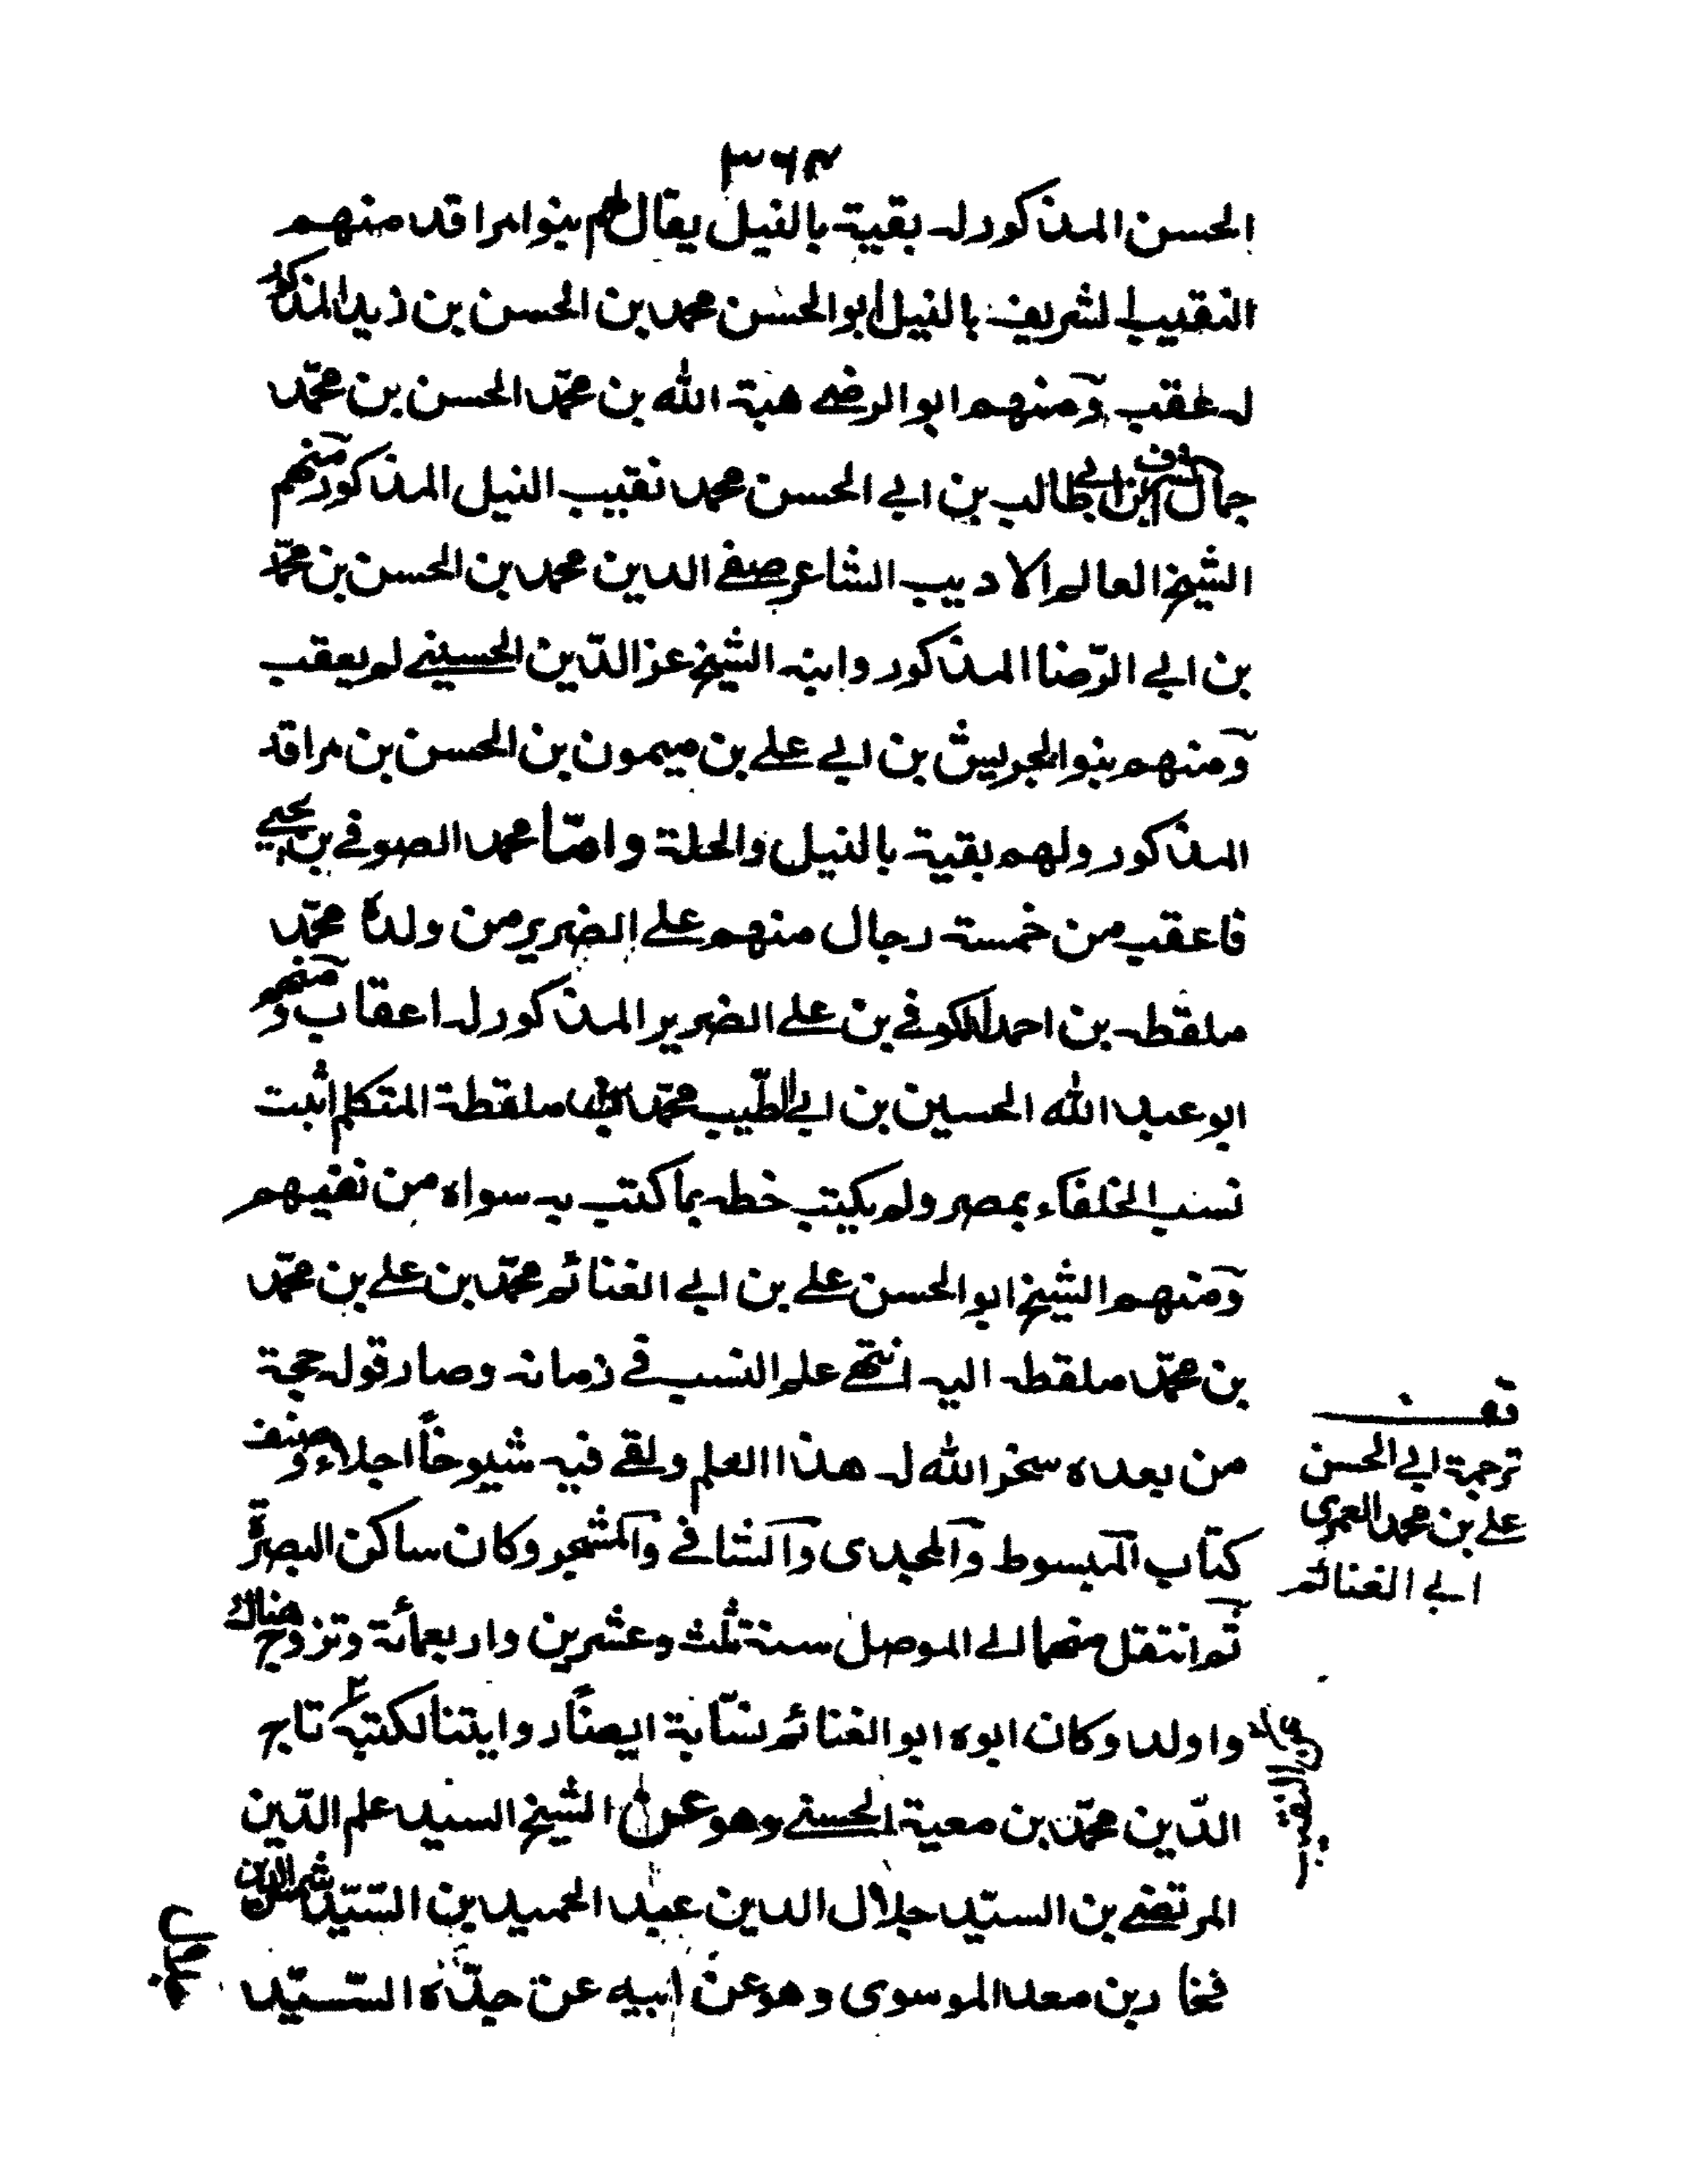 ٣٦٤
الحسن المذكور له بقية بالنيل يقال لهم بنوا مراقد منهم
النقيب الشريف بالنيل ابو الحسن محمد بن الحسن بن زيد المذكور
له عقب ومنهم ابو الرضى هبة الله بن محمّد الحسن بن محمّد
جمال الشرف ابن ابى طالب بن ابي الحسن محمد نقيب النيل المذكور ومنهم
الشيخ العالم الاديب الشاعر صفى الدين محمد بن الحسن بن محمّد
بن ابي الرّضا المذكور وابنه الشيخ عز الدّين الحسيني لم يعقب
ومنهم بنو الجريش بن ابي علي بن ميمون بن الحسن بن مراقد
المذكور ولهم بقية بالنيل والحلة وامّا محمد الصوفي بن يحيى
فاعقب من خمسة رجال منهم علي الضرير من ولده محمّد
ملقطه بن احمد الكوفي بن علي الضرير المذكور له اعقاب ومنهم
ابو عبد الله الحسين بن ابي الطّيب محمّد بن ملقطة المتكلم اثبت
نسب الخلفاء بمصر ولم يكتب خطه بما كتب به سواه من نفيهم
ومنهم الشيخ ابو الحسن علي بن ابي الغنائم محمّد بن علي بن محمّد
بن محمّد ملقطه اليه انتهى علم النسب في زمانه وصار قوله حجة
من بعده سخر الله له هذا العلم ولقي فيه شيوخاً اجلاء وصنف
كتاب المبسوط والمجدى والشافي والمشجر وكان ساكن البصرة
ثم انتقل منها الى الموصل سنة ثلث وعشرين واربعمائة وتزوج هناك
واولد وكان ابوه ابو الغنائم نسّابة ايضاً روايتنا لكتبه تاج
الدّين محمّد بن معية الحسنى وهو عن الشيخ السيد علم الدّين
المرتضى بن السيّد جلال الدين عبد الحميد بن السّيّد شمس الدين
فخار بن معد الموسوى وهو عن ابيه عن جدّه السّيّد
ترجمة ابي الحسن
علي بن محمد العمرى
ابي الغنائم
النقيب